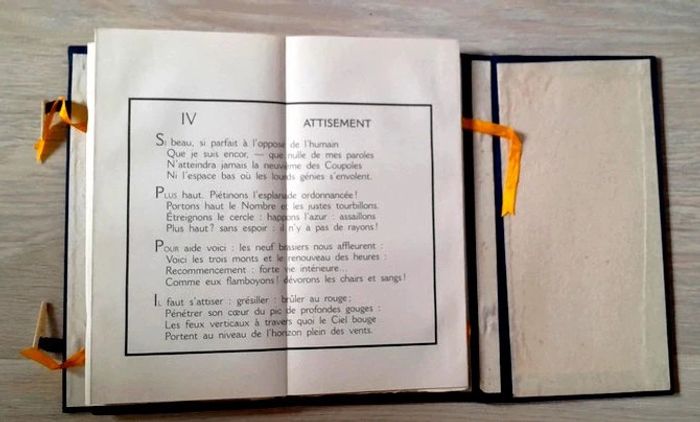 IV ATTISEMENT
Si beau, si parfait à l'opposé de l'humain
Que je suis encor, — que nulle de mes paroles
N'atteindra jamais la neuvième des Coupoles
Ni l'espace bas où les lourds génies s'envolent.
Plus haut. Piétinons l'esplanade ordonnancée!
Portons haut le Nombre et les justes tourbillons.
Étreignons le cercle : happons l'azur : assaillons
Plus haut? sans espoir : il n'y a pas de rayons!
Pour aide voici : les neuf brasiers nous affleurent :
Voici les trois monts et le renouveau des heures :
Recommencement : forte vie intérieure...
Comme eux flamboyons! dévorons les chairs et sangs!
Il faut s'attiser : grésiller : brûler au rouge;
Pénétrer son cœur du pic de profondes gouges :
Les feux verticaux à travers quoi le Ciel bouge
Portent au niveau de l'horizon plein des vents.